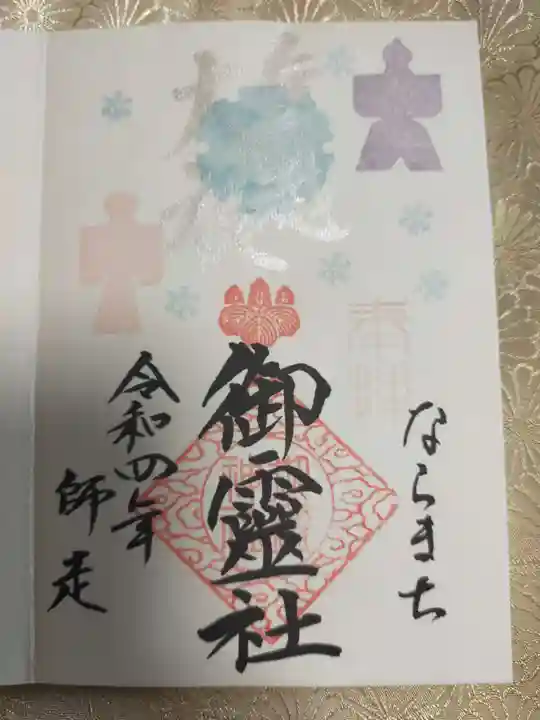 奉拝
ならまち
御靈社
令和四年
師走